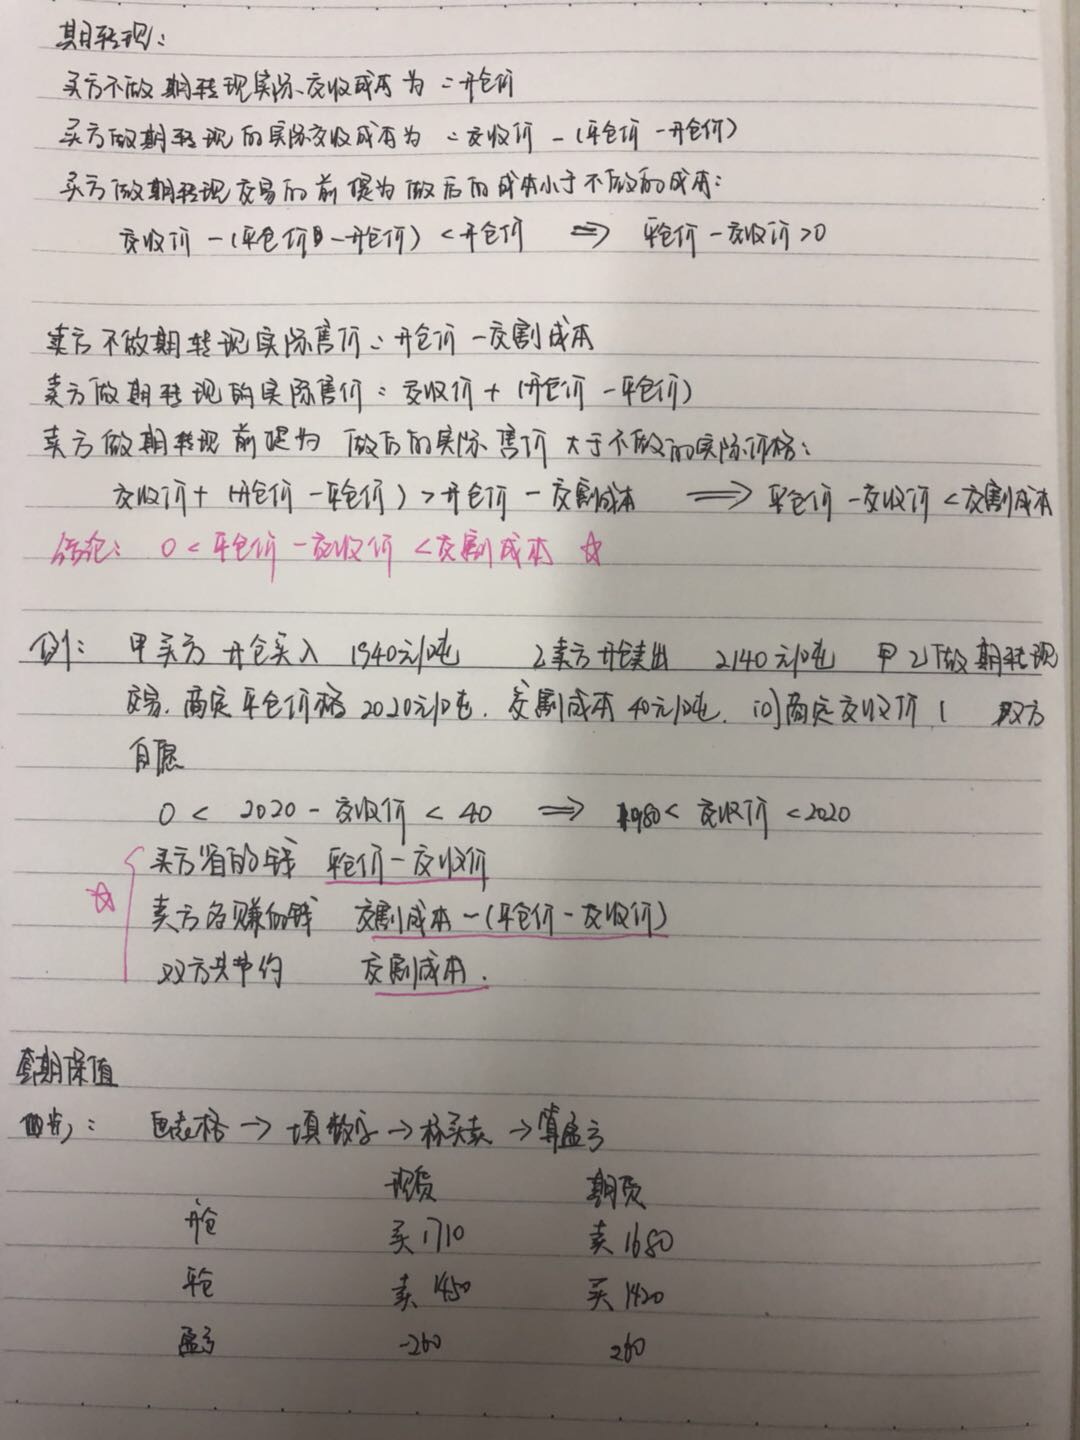 期转现:
买方不做期转现实际交收成本为:开仓价
买方做期转现的实际交收成本为:交收价-(平仓价-开仓价)
买方做期转现交易的前提为做后的成本小于不做的成本:
交收价-(平仓价-开仓价)<开仓价 ⇒ 平仓价-交收价>0
卖方不做期转现实际售价:开仓价-交割成本
卖方做期转现的实际售价:交收价+(开仓价-平仓价)
卖方做期转现前提为 做后的实际售价大于不做的实际价格:
交收价+(开仓价-平仓价)>开仓价-交割成本 ⇒ 平仓价-交收价<交割成本
结论: 0<平仓价-交收价<交割成本 ☆
例: 甲买方 开仓买入 1940元/吨 乙卖方开仓卖出 2140元/吨 甲乙做期转现
交易,商定平仓价格2020元/吨,交割成本40元/吨,问商定交收价( 双方
自愿
0<2020-交收价<40 ⇒ 1980<交收价<2020
买方省的钱 平仓价-交收价
☆ 卖方多赚的钱 交割成本-(平仓价-交收价)
双方共节约 交割成本.
套期保值
四步: 画表格→填数字→标买卖→算盈亏
现货 期货
开仓 买1710 卖1680
平仓 卖1450 买1420
盈亏 -260 260